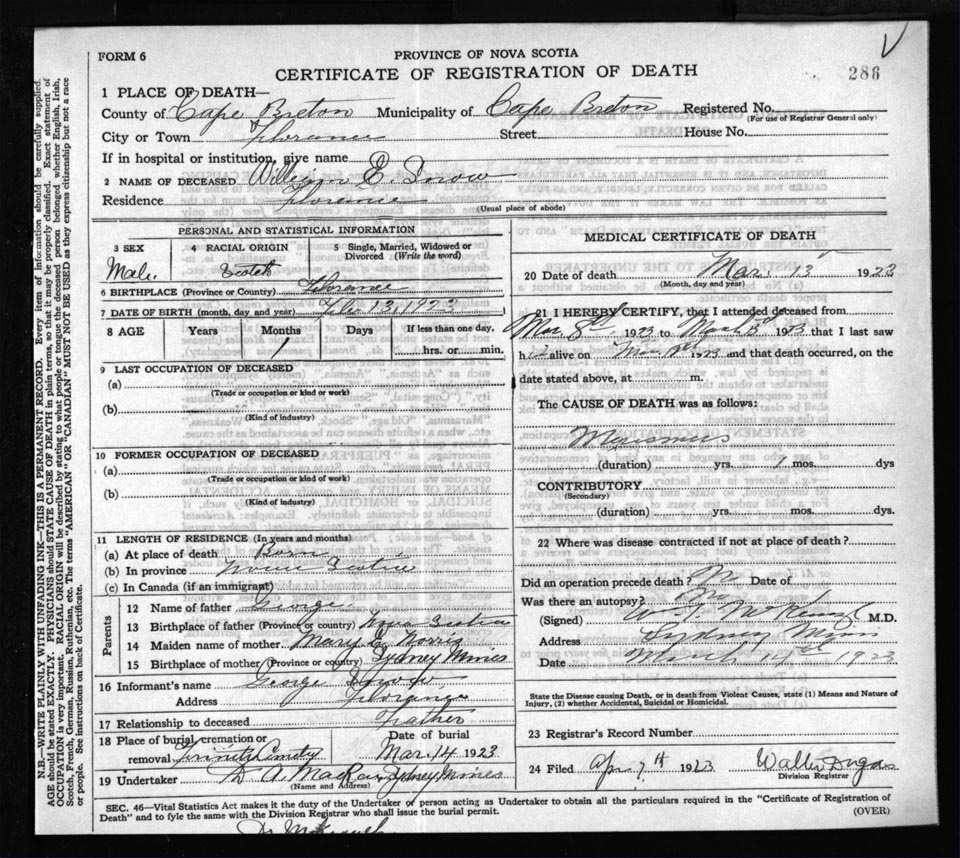 FORM 6
PROVINCE OF NOVA SCOTIA
CERTIFICATE OF REGISTRATION OF DEATH
286
1 PLACE OF DEATH—
County of Cape Breton Municipality of Cape Breton Registered No.
(For use of Registrar General only)
City or Town Florence Street House No.
If in hospital or institution, give name
2 NAME OF DECEASED William E. Snow
Residence Florence
(Usual place of abode)
PERSONAL AND STATISTICAL INFORMATION
3 SEX 4 RACIAL ORIGIN 5 Single, Married, Widowed or Divorced (Write the word)
Male Scotch
6 BIRTHPLACE (Province or Country) Florence
7 DATE OF BIRTH (month, day and year) Feb 13, 1923
8 AGE Years Months Days If less than one day,
1 hrs. or min.
9 LAST OCCUPATION OF DECEASED
(a)
(Trade or occupation or kind of work)
(b)
(Kind of industry)
10 FORMER OCCUPATION OF DECEASED
(a)
(Trade or occupation or kind of work)
(b)
(Kind of industry)
11 LENGTH OF RESIDENCE (In years and months)
(a) At place of death Born
(b) In province Nova Scotia
(c) In Canada (if an immigrant)
Parents
12 Name of father George
13 Birthplace of father (Province or country) Nova Scotia
14 Maiden name of mother Mary E. Norris
15 Birthplace of mother (Province or country) Sydney Mines
16 Informant's name George Snow
Address Florence
17 Relationship to deceased Father
18 Place of burial, cremation or removal Trinity Cemetry Date of burial Mar. 14 1923
19 Undertaker D. A. MacRae, Sydney Mines
(Name and Address)
MEDICAL CERTIFICATE OF DEATH
20 Date of death Mar. 13 1923
(Month, day and year)
21 I HEREBY CERTIFY, that I attended deceased from
Mar. 8th 1923 to 1923 that I last saw
h alive on 1923 and that death occurred, on the
date stated above, at m.
The CAUSE OF DEATH was as follows:
(duration) yrs. 1 mos. dys
CONTRIBUTORY
(Secondary)
(duration) yrs. mos. dys.
22 Where was disease contracted if not at place of death?
Did an operation precede death? No Date of
Was there an autopsy? No
(Signed) M.D.
Address Sydney Mines
Date March 1923
State the Disease causing Death, or in death from Violent Causes, state (1) Means and Nature of
Injury, (2) whether Accidental, Suicidal or Homicidal.
23 Registrar's Record Number
24 Filed Apr 7th 1923 Walter Dugas
Division Registrar
SEC. 46—Vital Statistics Act makes it the duty of the Undertaker or person acting as Undertaker to obtain all the particulars required in the "Certificate of Registration of
Death" and to fyle the same with the Division Registrar who shall issue the burial permit. (OVER)
N.B.—WRITE PLAINLY WITH UNFADING INK—THIS IS A PERMANENT RECORD. Every item of information should be carefully supplied.
AGE should be stated EXACTLY. PHYSICIANS should STATE CAUSE OF DEATH in plain terms, so that it may be properly classified. Exact statement of
OCCUPATION is very important. RACIAL ORIGIN will be described by stating to what people or tongue the deceased person belonged, whether English, Irish,
Scotch, French, German, Russian, Ruthenian, etc. The terms "AMERICAN" OR "CANADIAN" MUST NOT BE USED as they express citizenship but not a race
or people. See instructions on back of Certificate.